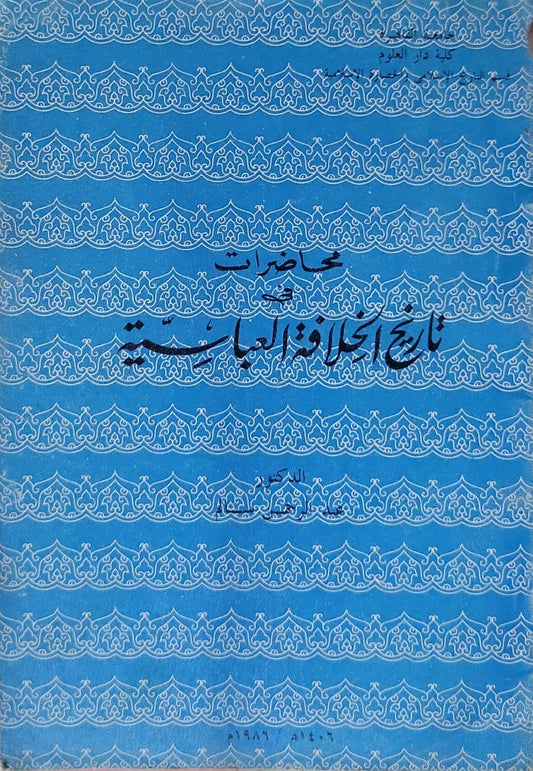 جامعة القاهرة
كلية دار العلوم
قسم التاريخ الإسلامي والحضارة الإسلامية
محاضرات
في
تاريخ الخلافة العباسيّة
الدكتور
عبد الرحمن سالم
١٤٠٦هـ / ١٩٨٦م